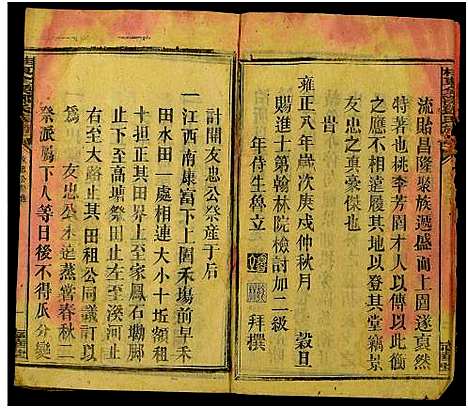 流貽昌隆聚族遞盛而上固遂裒然
特著也桃李芳園才人以傳以此衡
之應不相遠履其地以登其堂竊景
之眞豪傑也
旹
雍正八年歲次庚戌仲秋月　穀旦
賜進士第翰林院檢討加二級
年侍生魯立　拜撰
計開友忠公祭產于后
一江西南康富下上圍禾塲前早禾
田水田一處相連大小十坵額租
十担正其田界上至家鳳石塝脚
下止左至高塘祭田止右至溪河止
右至大路止其田租公同議訂以
爲　友忠公永遠蒸嘗春秋二
祭派屬下人等日後不得瓜分變